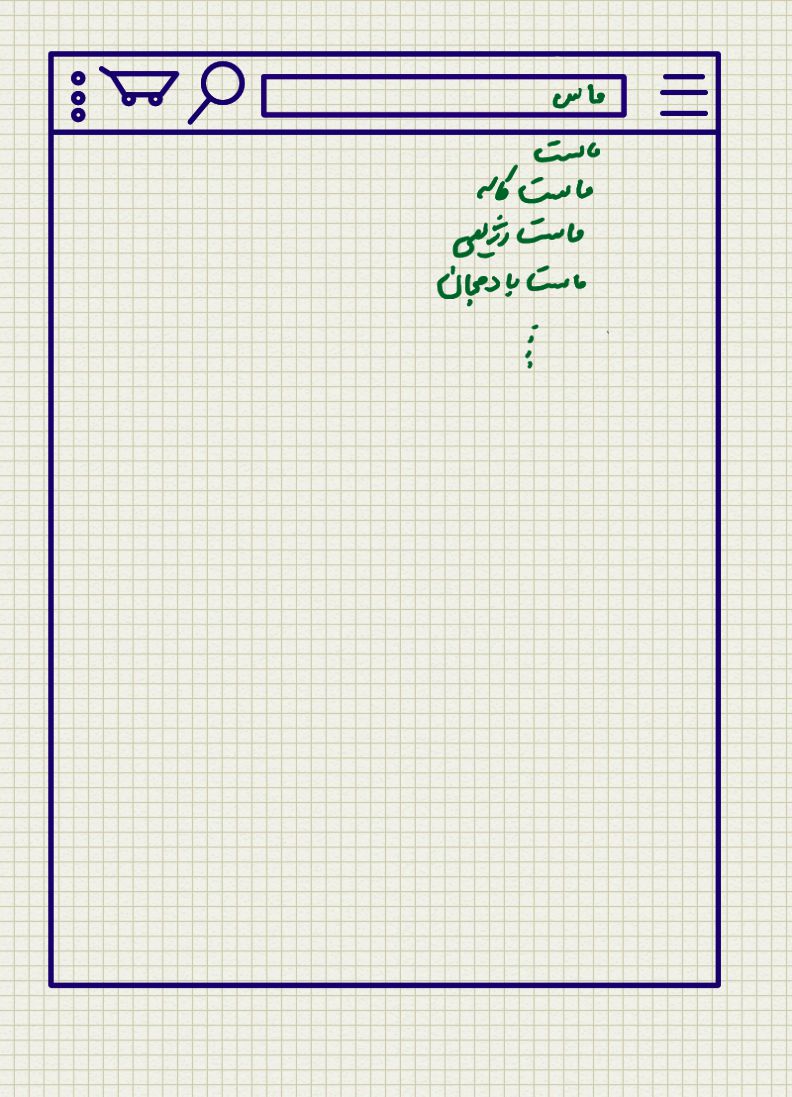 ماس
ماست
ماست کاله
ماست رژیمی
ماست بادمجان